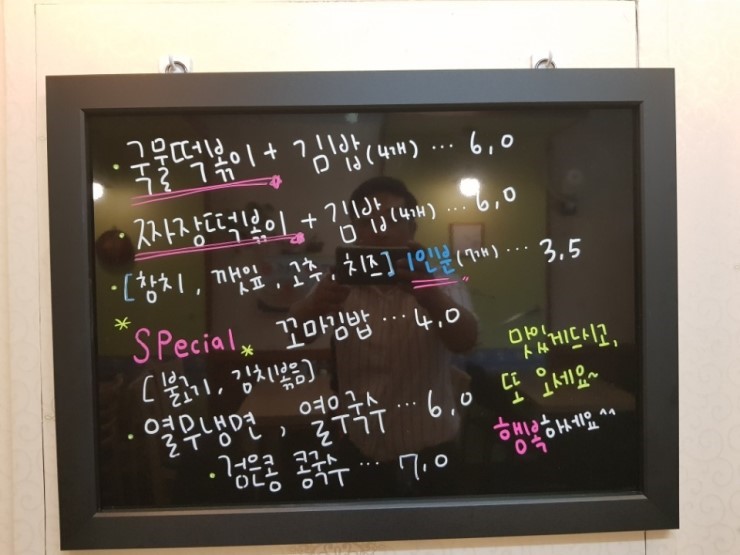 · 국물떡볶이 + 김밥 (4개) ... 6,0
· 짜장떡볶이 + 김밥 (4개) ... 6,0
· [참치, 깻잎, 고추, 치즈] 1인분 (7개) ... 3.5
* SPecial * 꼬마김밥 ... 4,0
[불고기, 김치볶음]
· 열무냉면, 열무국수 ... 6,0
· 검은콩 콩국수 ... 7,0
맛있게드시고,
또 오세요~
행복하세요^^